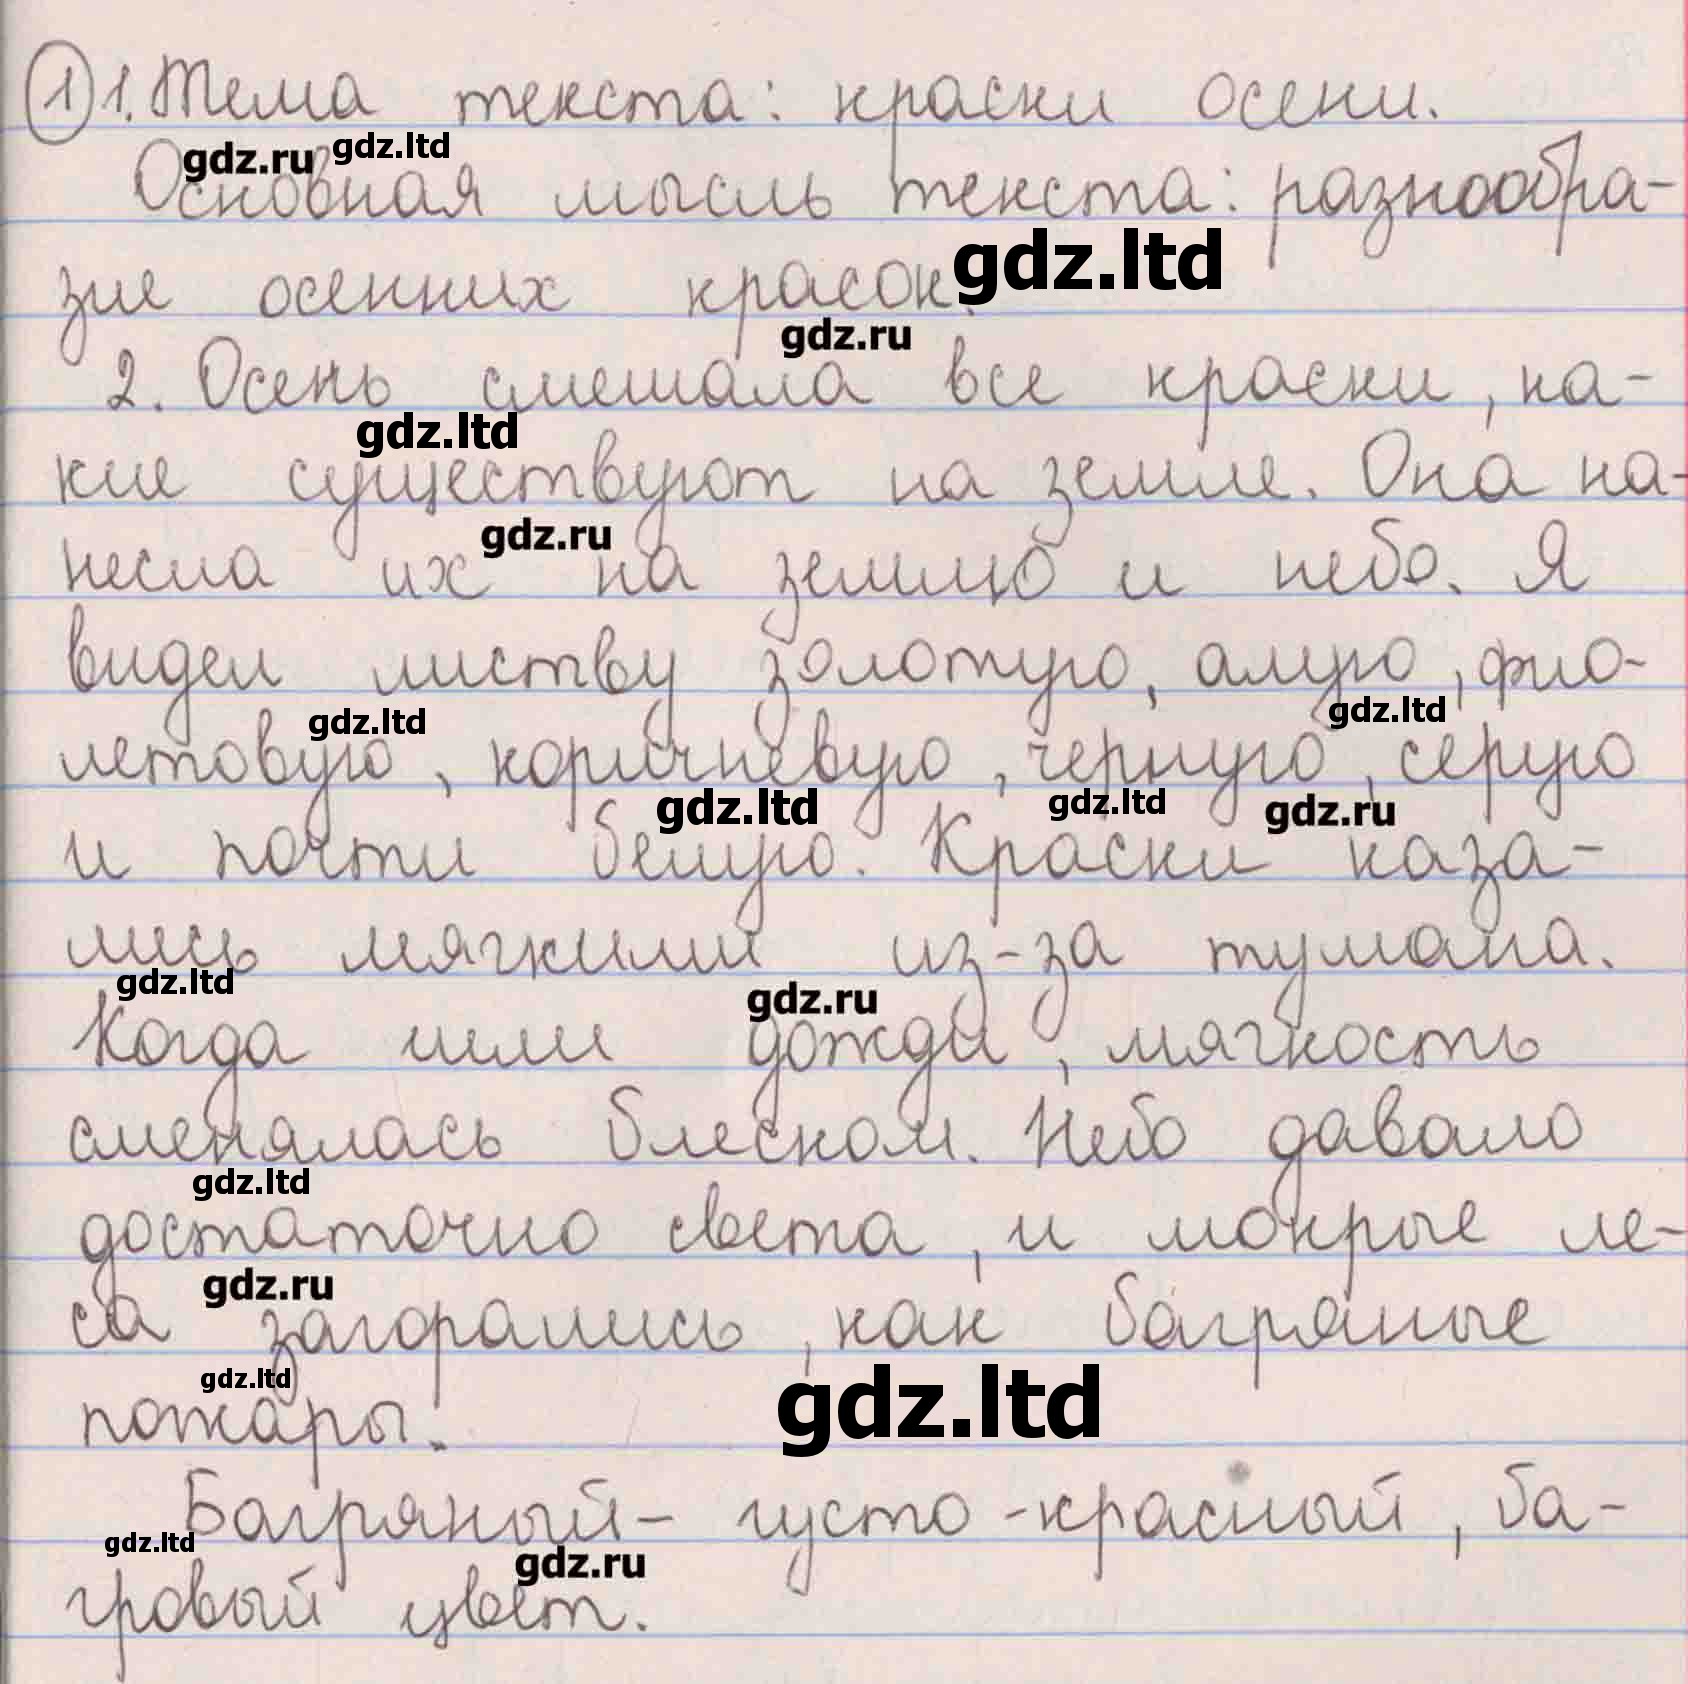 ① 1. Тема текста: краски осени.
gdz.ru gdz.ltd
Основная мысль текста: разнообра-
gdz.ltd
зие осенних красок.
gdz.ru
2. Осень смешала все краски, ка-
gdz.ltd
кие существуют на земле. Она на-
gdz.ru
несла их на землю и небо. Я
видел листву золотую, алую, фио-
gdz.ltd gdz.ltd
летовую, коричневую, черную, серую
gdz.ltd gdz.ltd gdz.ru
и почти белую. Краски каза-
лись мягкими из-за тумана.
gdz.ltd gdz.ru
Когда шли дожди, мягкость
сменялась блеском. Небо давало
gdz.ltd
достаточно света, и мокрые ле-
gdz.ru
са загорались, как багряные
gdz.ltd gdz.ltd
пожары.
Багряный - густо-красный, ба-
gdz.ltd gdz.ru
гровый цвет.